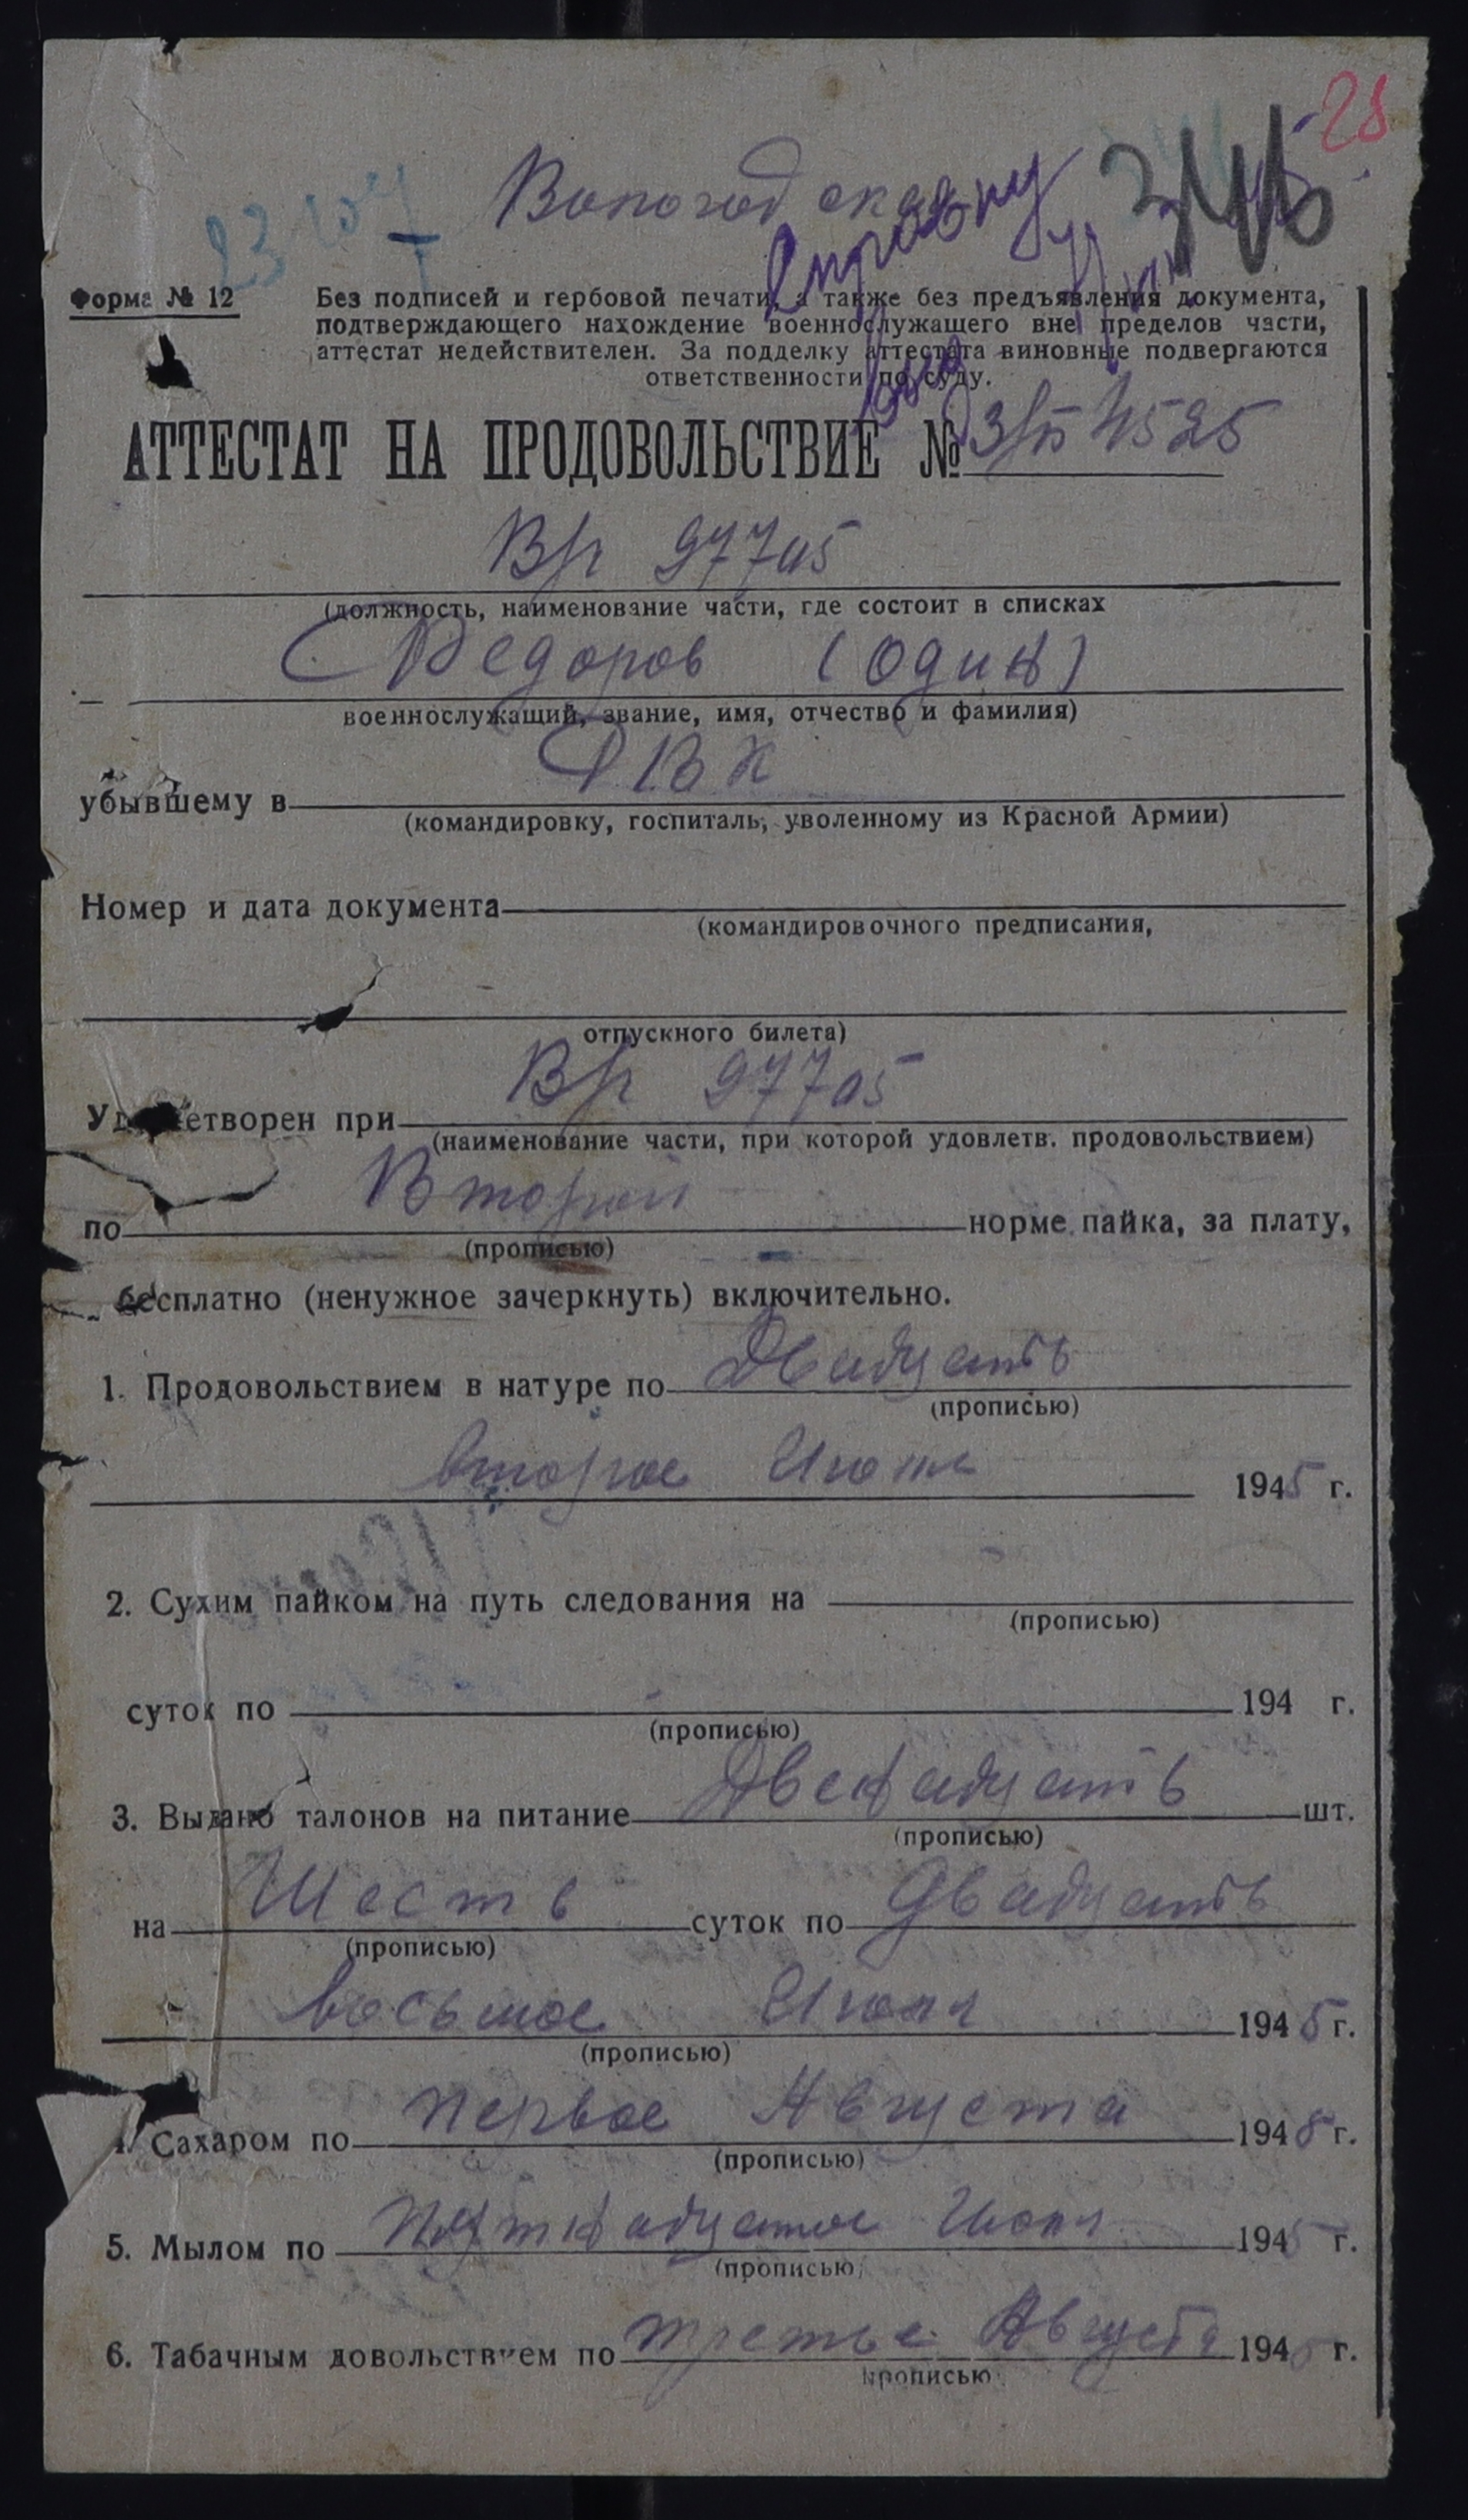 28
346
Вологодская
Справку
23 107
Форма № 12
Без подписей и гербовой печати, а также без предъявления документа,
подтверждающего нахождение военнослужащего вне пределов части,
аттестат недействителен. За подделку аттестата виновные подвергаются
ответственности по суду.
АТТЕСТАТ НА ПРОДОВОЛЬСТВИЕ № 3/п 4525
В/ч 97705
(должность, наименование части, где состоит в списках
Федоров (один)
военнослужащий, звание, имя, отчество и фамилия)
убывшему в РВК
(командировку, госпиталь, уволенному из Красной Армии)
Номер и дата документа
(командировочного предписания,
отпускного билета)
Удовлетворен при В/ч 97705
(наименование части, при которой удовлетв. продовольствием)
по Второй норме пайка, за плату,
(прописью)
бесплатно (ненужное зачеркнуть) включительно.
1. Продовольствием в натуре по Двадцать
(прописью)
второе Июля 1945 г.
2. Сухим пайком на путь следования на
(прописью)
суток по 194 г.
(прописью)
3. Выдано талонов на питание Двенадцать шт.
(прописью)
на Шесть суток по Двадцать
(прописью)
восьмое Июля 1945 г.
(прописью)
4. Сахаром по первое Августа 1945 г.
(прописью)
5. Мылом по Пятнадцатое Июля 1945 г.
(прописью)
6. Табачным довольствием по третье Августа 1945 г.
(прописью)